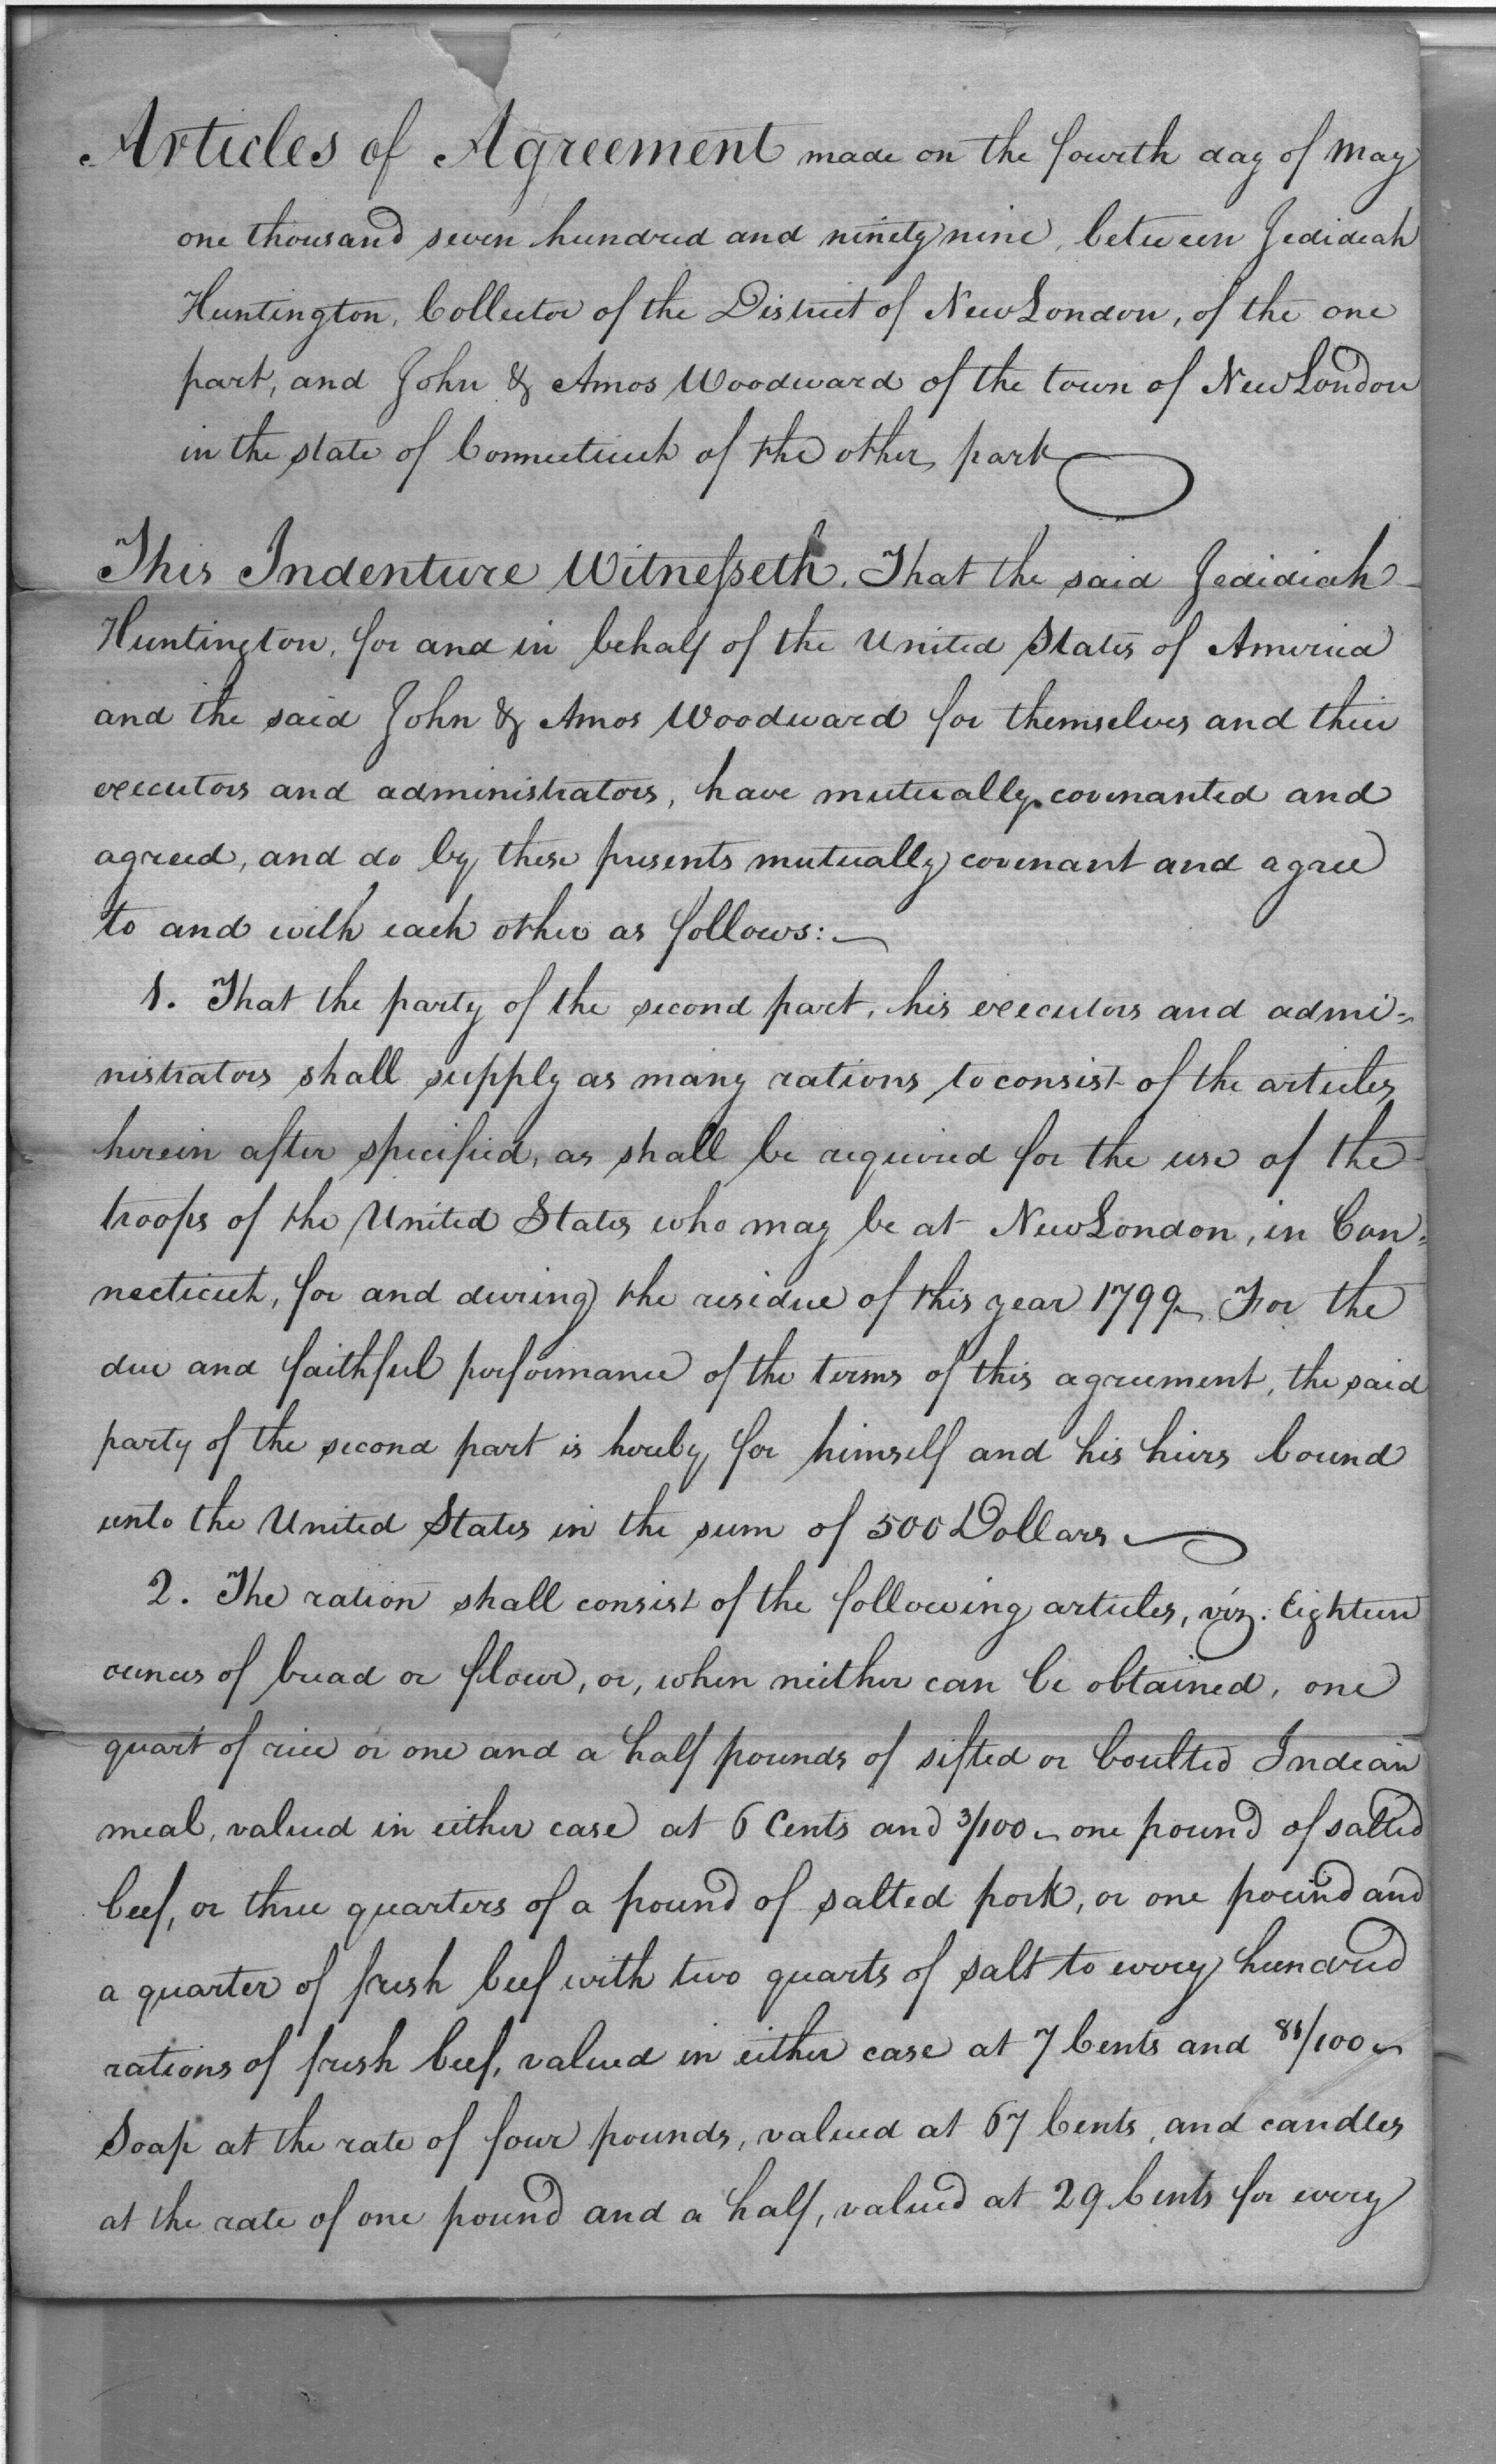 Articles of Agreement made on the fourth day of May
one thousand seven hundred and ninety nine, between Jedidiah
Huntington, Collector of the District of New London, of the one
part, and John & Amos Woodward of the town of New London
in the state of Connecticut of the other part
This Indenture Witnesseth. That the said Jedidiah
Huntington, for and in behalf of the United States of America
and the said John & Amos Woodward for themselves and their
executors and administrators, have mutually covenanted and
agreed, and do by these presents mutually covenant and agree
to and with each other as follows:—
1. That the party of the second part, his executors and admi-
nistrators shall supply as many rations to consist of the articles
herein after specified, as shall be required for the use of the
troops of the United States who may be at New London, in Con-
necticut, for and during the residue of this year 1799. For the
due and faithful performance of the terms of this agreement, the said
party of the second part is hereby for himself and his heirs bound
unto the United States in the sum of 500 Dollars
2. The ration shall consist of the following articles, viz. Eighteen
ounces of bread or flour, or, when neither can be obtained, one
quart of rice or one and a half pounds of sifted or boulted Indean
meal, valued in either case at 6 Cents and 3/100 one pound of salted
beef, or three quarters of a pound of salted pork, or one pound and
a quarter of fresh beef with two quarts of salt to every hundred
rations of fresh beef, valued in either case at 7 Cents and /100
Soap at the rate of four pounds, valued at 67 Cents, and candles
at the rate of one pound and a half, valued at 29 Cents for every